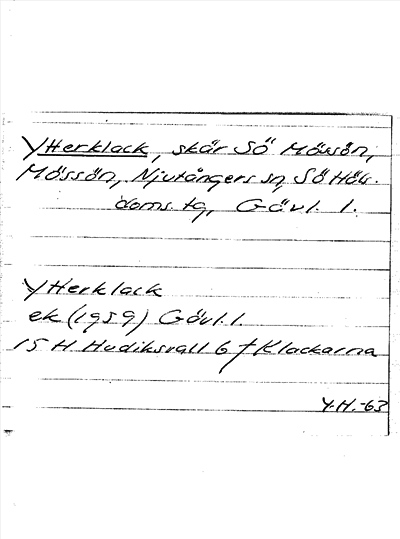 Ytterklack, skär SÖ Mössön,
Mössön, Njutångers sn, Sö Häls.
doms. tg, Gävl. l.
Ytterklack
ek (1959) Gävl. l.
15 H Hudiksvall 6 f Klackarna
Y.H.-63